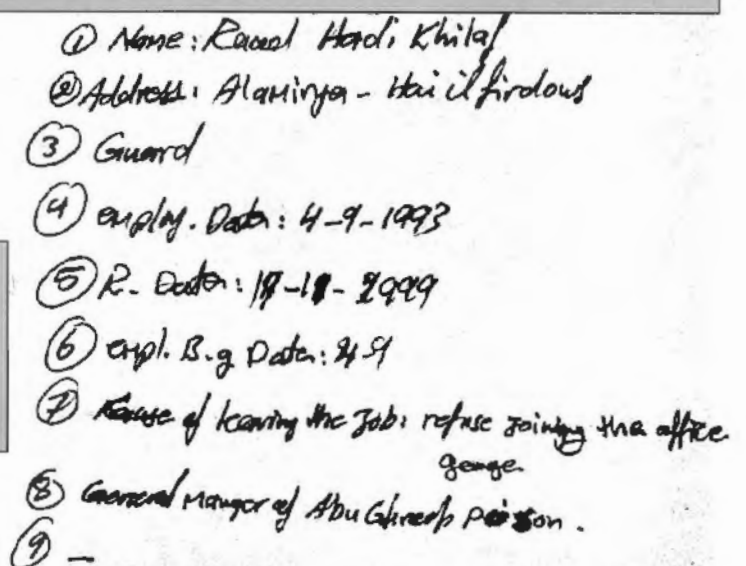 ① Name: Raeed Hadi Khilaf
② Address: Alamirya - Hai il firdous
③ Guard
④ employ. Date: 4-9-1993
⑤ R. Date: 11-1999
⑥ empl. B.g Date:
⑦ of leaving the Job: refuse Joining the office
⑧ General Manger of Abu Ghreeb prison.
⑨ –